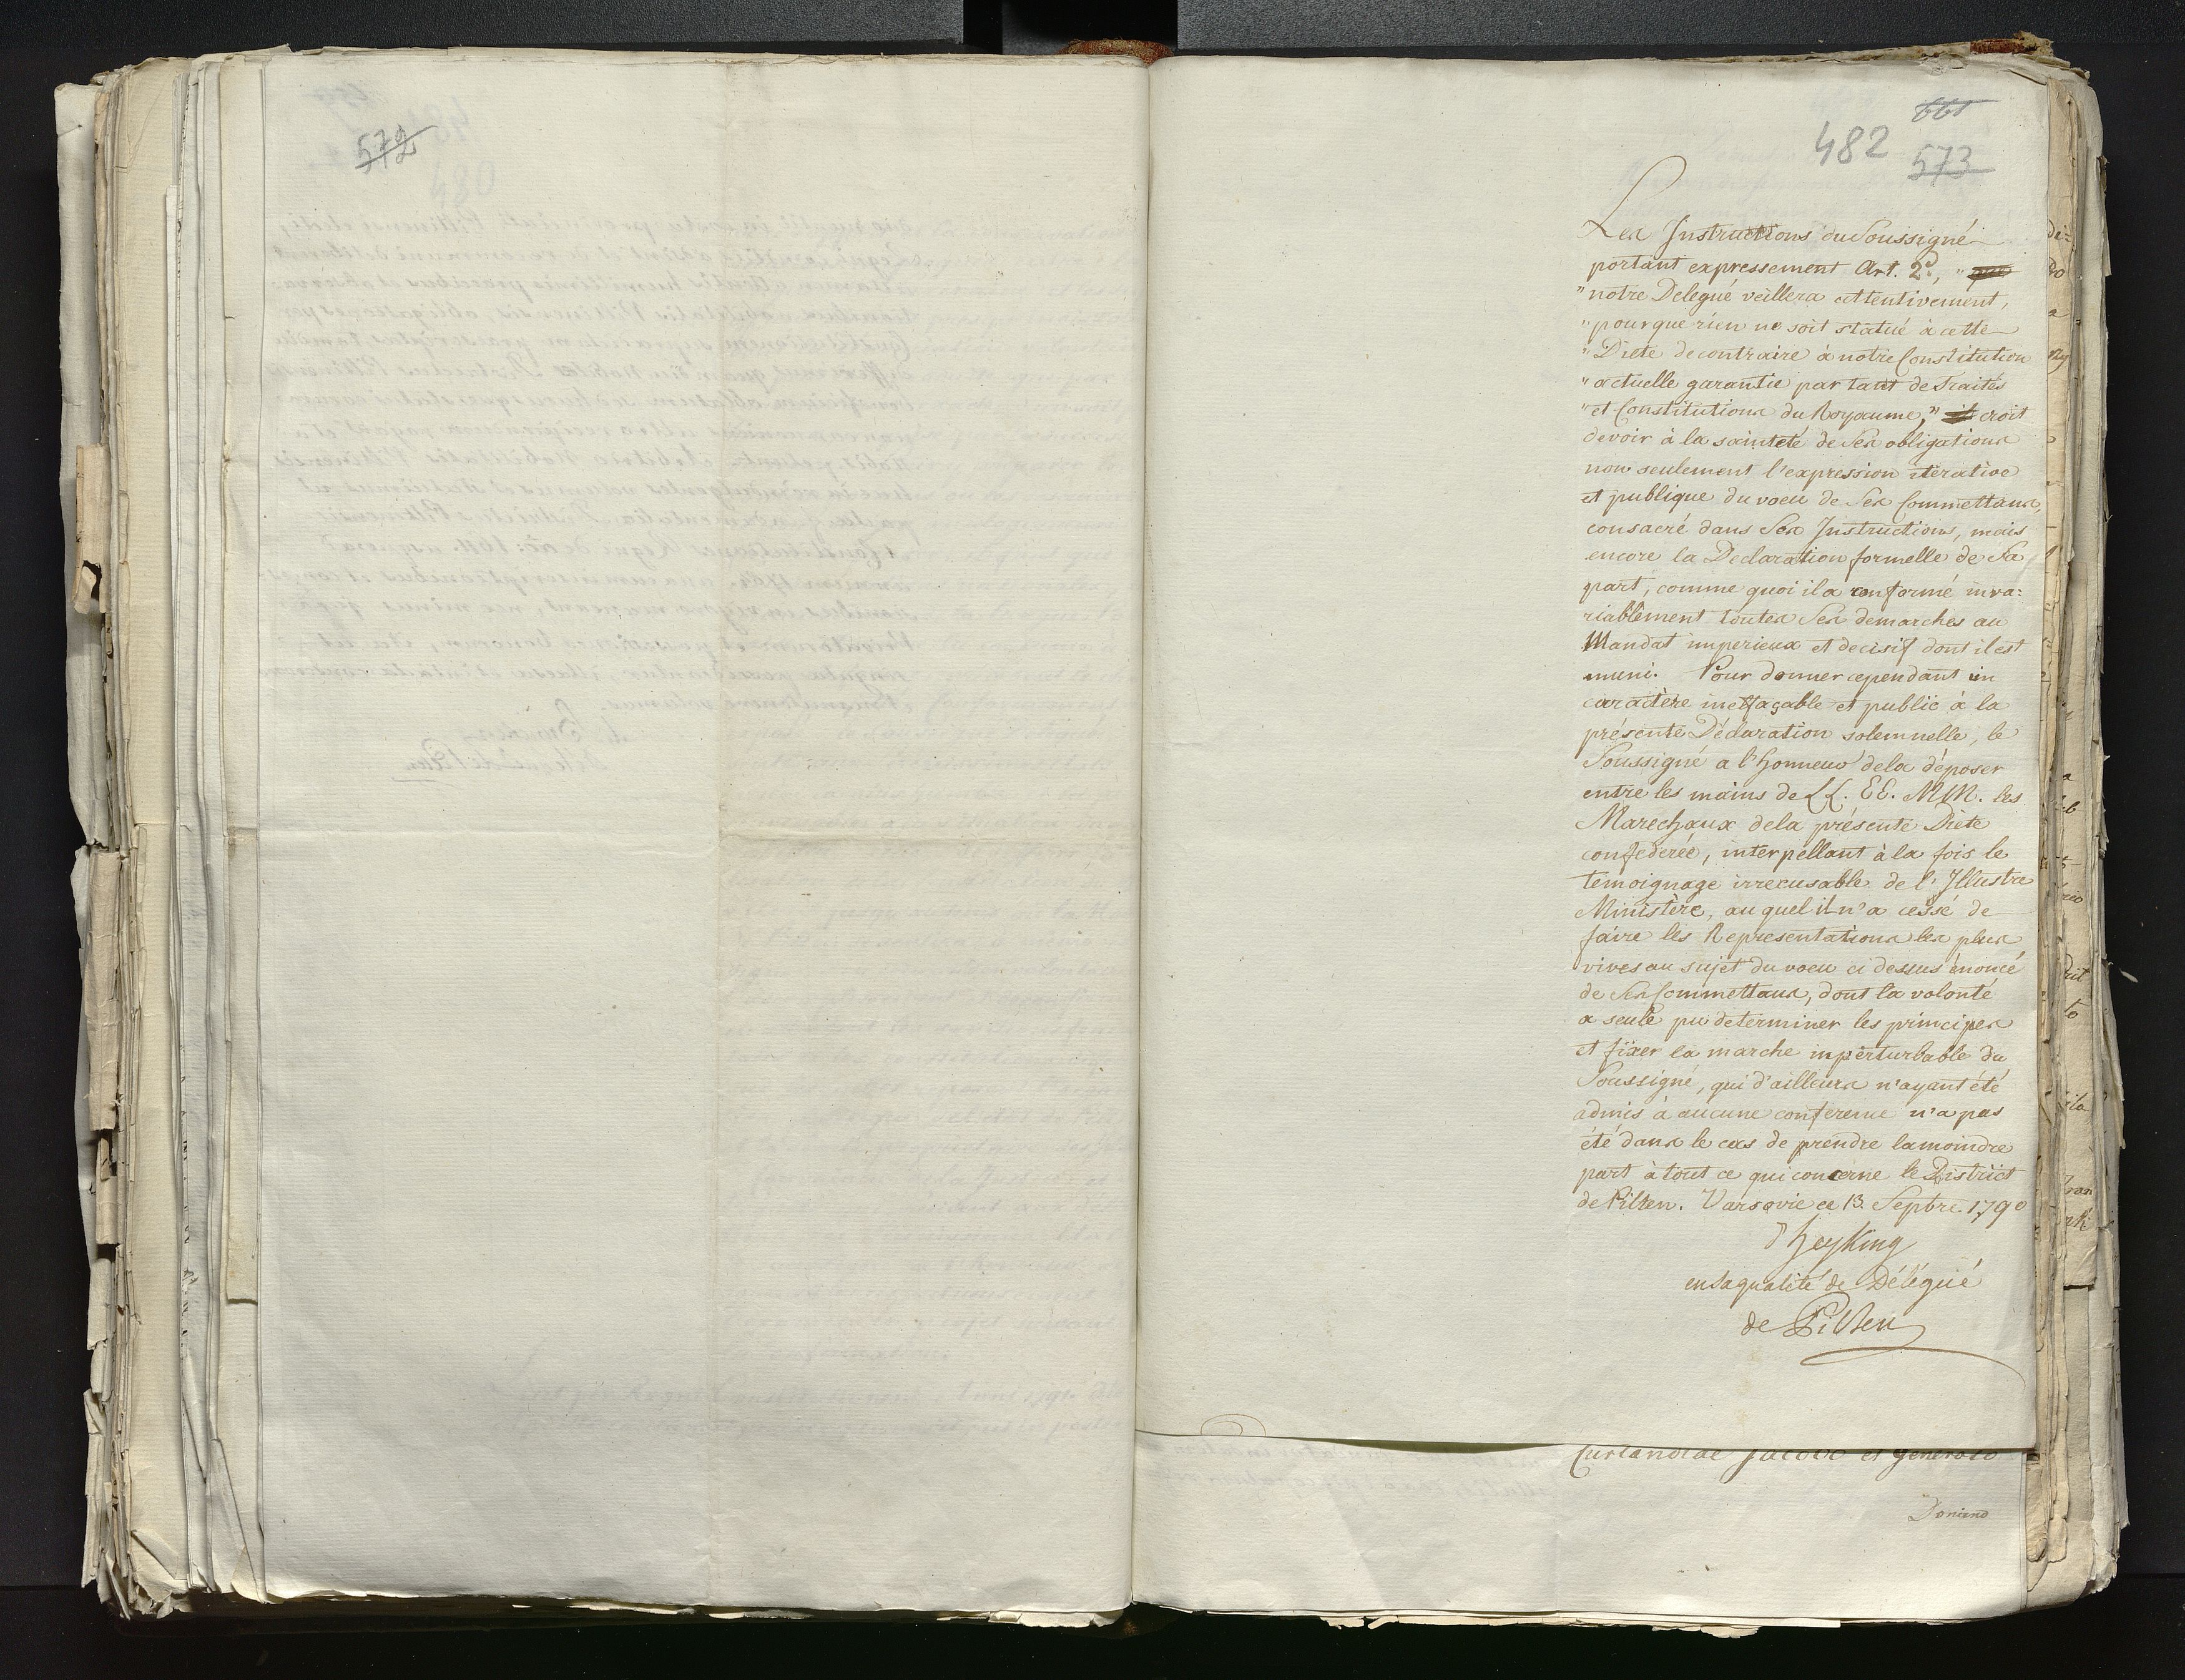 572
661
482
573
Les Instructions du Soussigné
portant expressement Art. 2d, "
" notre Delegué veillera attentivement,
" pour que rien ne soit statué à cette
" Diete de contraire à notre Constitution
" actuelle garantie par tant de Traités
" et Constitutions du Royaume," il croit
devoir à la sainteté de Ses obligations
non seulement l'expression iterative
et publique du voeu de Ses Commettans,
consacré dans Ses Instructions, mais
encore la Declaration formelle de Sa
part, comme quoi il a conformé inva:
riablement toutes Ses demarches au
Mandat imperieux et decisif dont il est
muni. Pour donner cependant un
caractère ineffaçable et public à la
présente Déclaration solemnelle, le
Soussigné a l'honneur de la déposer
entre les mains de LL. EE. MM. les
Marechaux de la présente Diete
confederée, interpellant à la fois le
témoignage irrecusable de l'Illustre
Ministère, au quel il n'a cessé de
faire les Representations les plus
vives au sujet du voeu ci dessus énoncé
de Ses Commettans, dont la volonté
a seule pu determiner les principes
et fixer la marche imperturbable du
Soussigné, qui d'ailleurs n'ayant été
admis à aucune conference n'a pas
été dans le cas de prendre la moindre
part à tout ce qui concerne le District
de Pilten. Varsovie ce 13. Septbre 1790
d'Heyking
en Sa qualité de Délégué
de Pilten
Curlandiae Jacobo et generoso